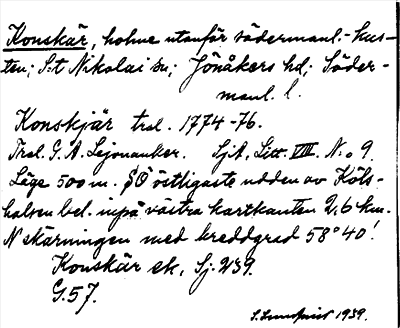 Konskär, holme utanför södermanl.-kus-
ten; S:t Nikolai sn; Jönåkers hd; Söder-
manl. l.
Konskjär trsl. 1774-76.
Trsl. G. A. Lejonanker. SjA, Litt. VIII. N:o 9.
Läge 500 m. SO östligaste udden av Köls-
halsen bel. inpå västra kartkanten 2,6 km.
N skärningen med breddgrad 58° 40'.
Konskär ek, Sj. 239.
G. 57.
1939.